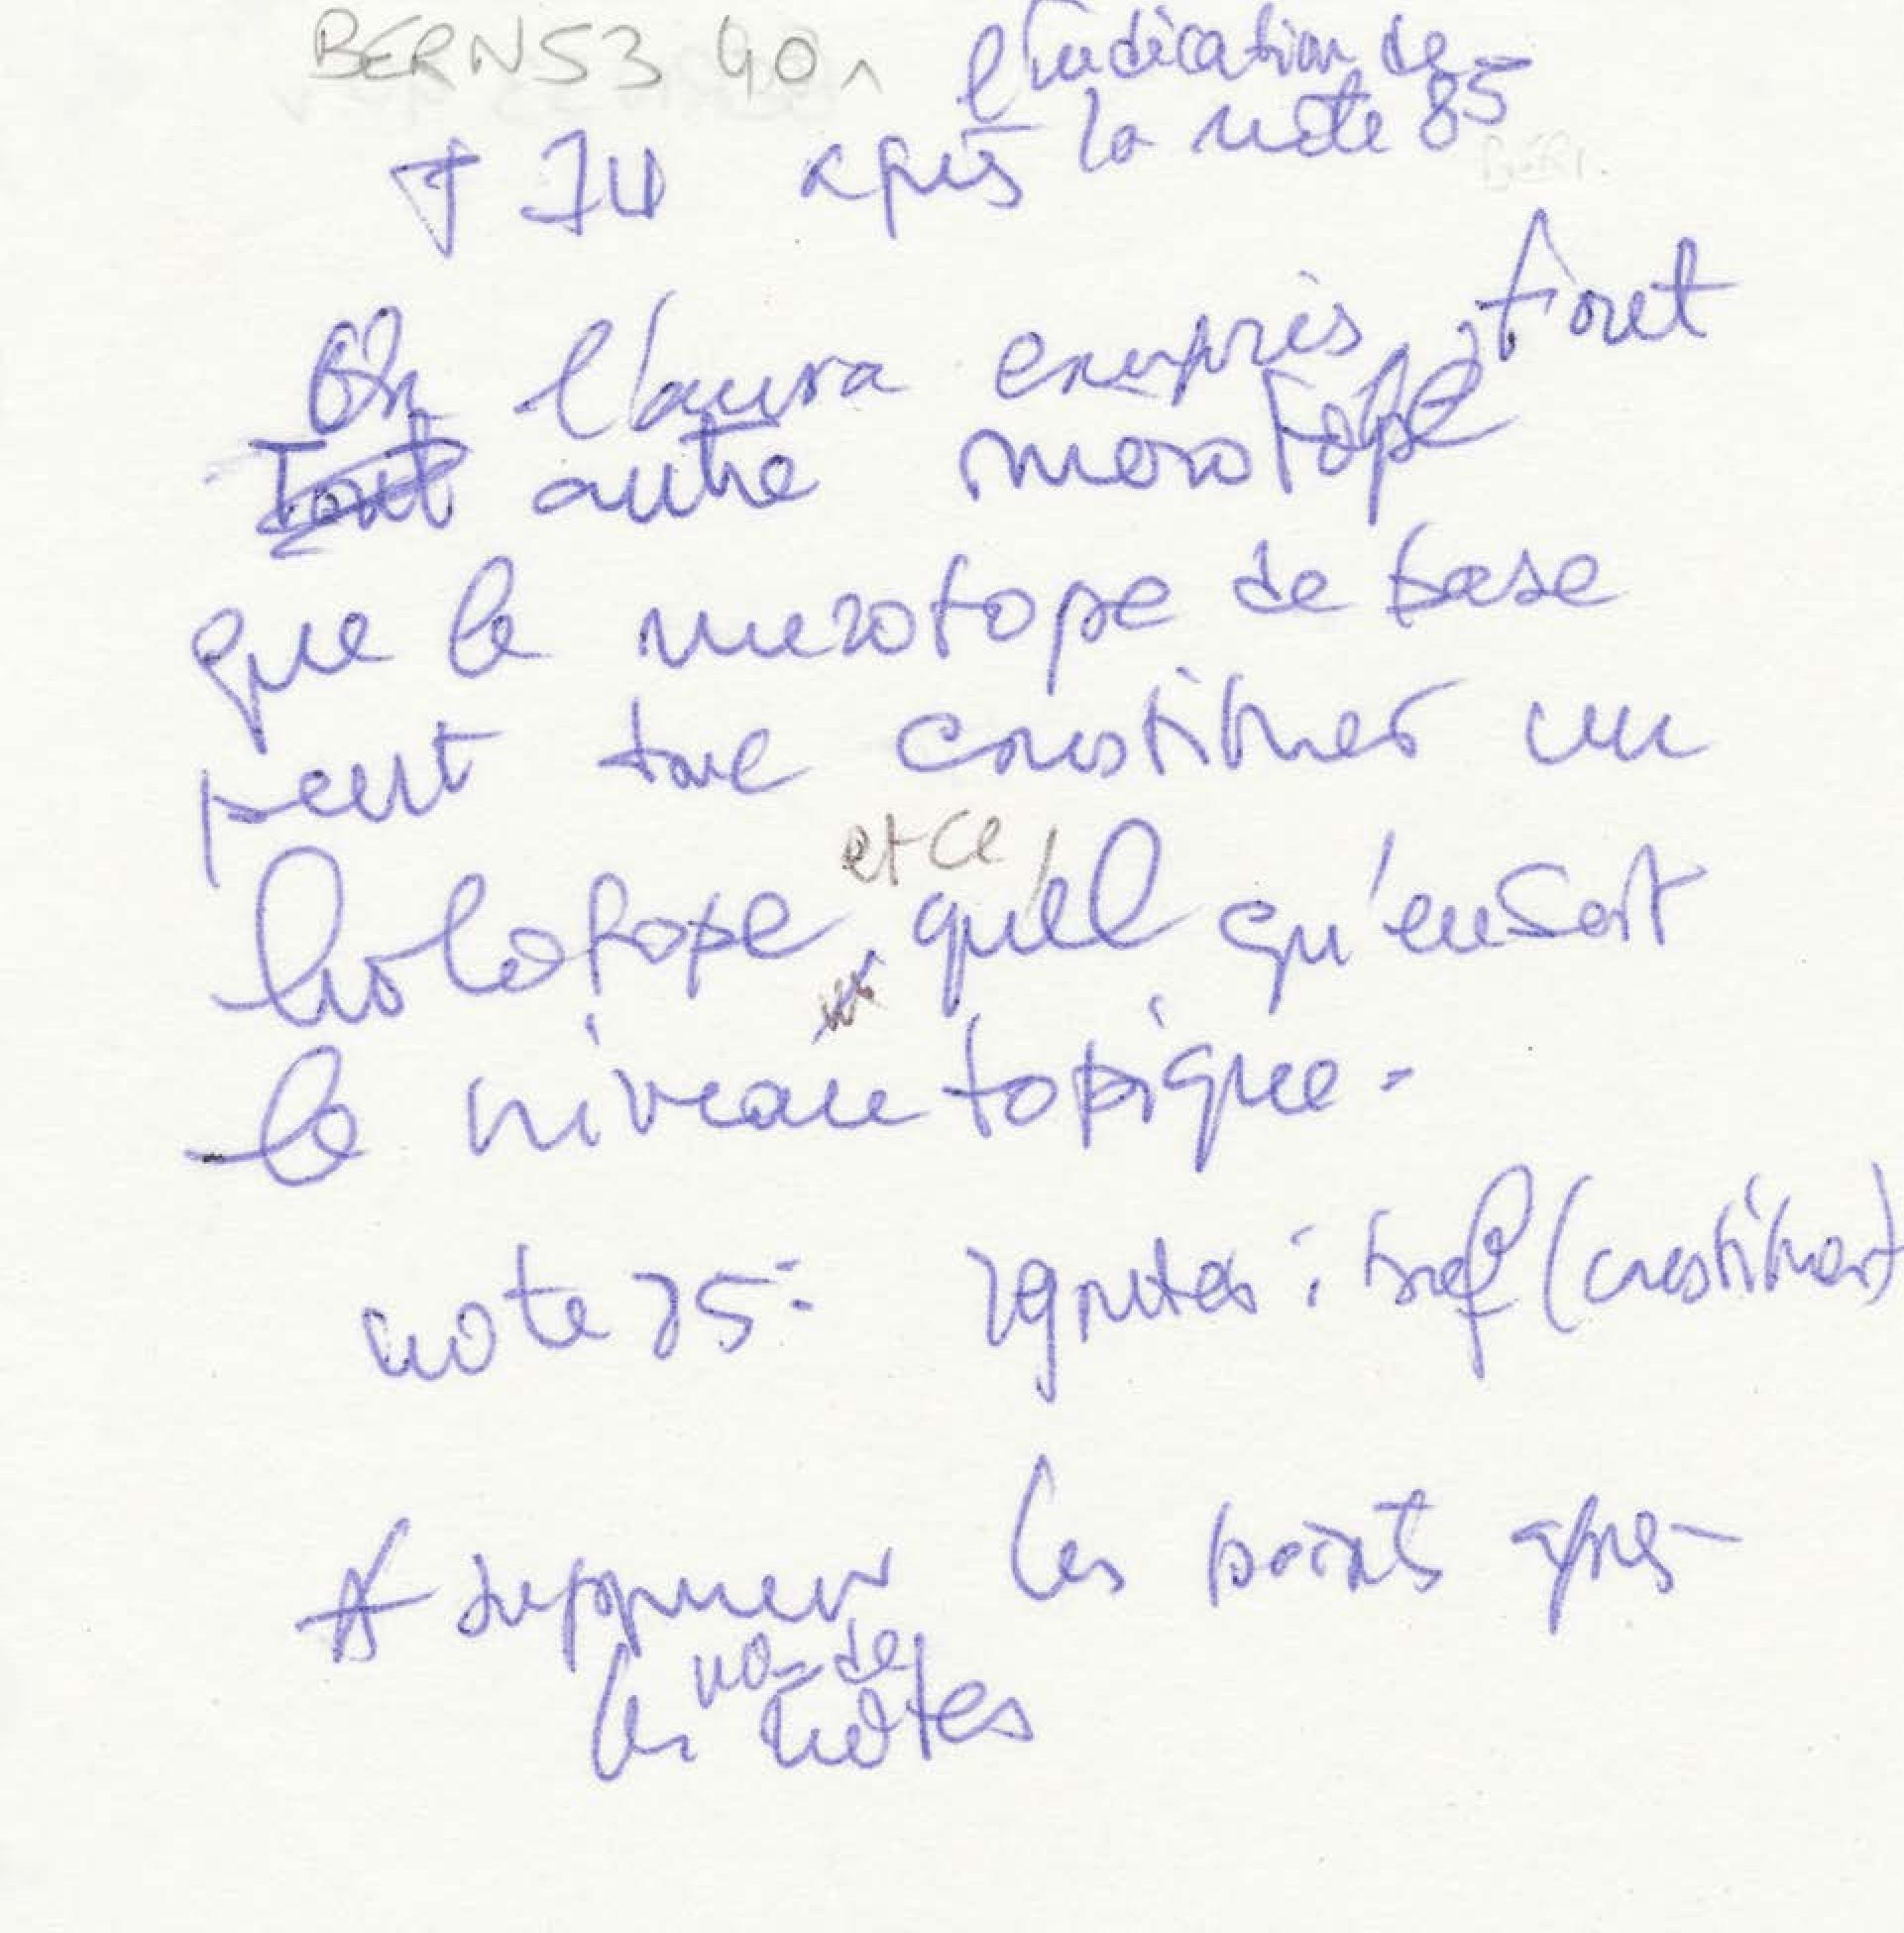 BERNS3 40 l'indication de
74 après la note 85
On l'aura compris, tout
Tout autre merotope
que le merotope de base
peut donc constituer un
holotope, et ce quel qu'en soit
le niveau topique.
note 75: : bref (constituer)
supprimer les points après
les nos de notes